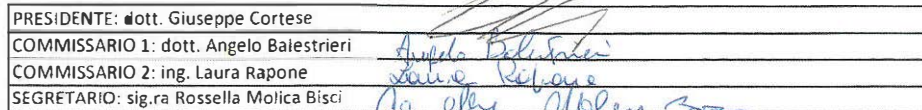 PRESIDENTE: dott. Giuseppe Cortese
COMMISSARIO 1: dott. Angelo Balestrieri Angelo Balestrieri
COMMISSARIO 2: ing. Laura Rapone Laura Rapone
SEGRETARIO: sig.ra Rossella Molica Bisci